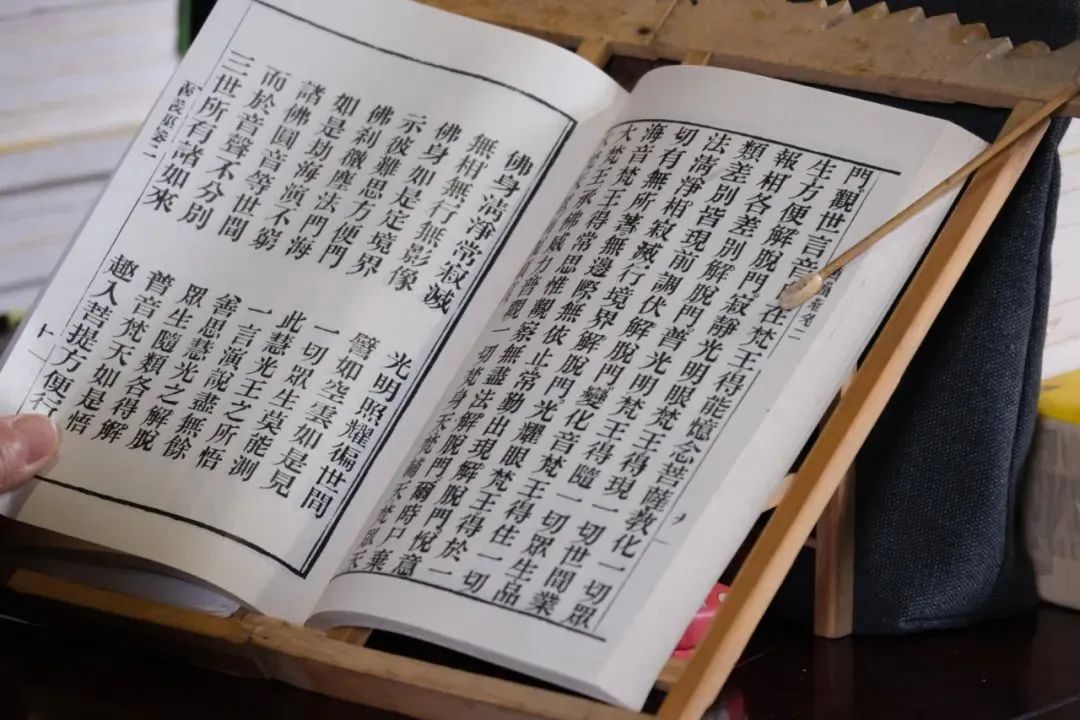 門觀世言音在梵王得能憶念菩薩教化一切眾
生方便解脫門寂靜光明眼梵王得現一切世間業
報相各差別解脫門普光明眼梵王得隨一切眾生品
類差別皆現前調伏解脫門變化音梵王得住一切
法清淨相寂滅行境界解脫門光耀眼梵王得於一
切有無所著無邊際無依止常勤出現解脫門悅意
海音梵王得常思惟觀察無盡法解脫門爾時尸棄
大梵王承佛威力普觀一切梵身天梵輔天梵眾天
佛身清淨常寂滅 光明照耀徧世間
無相無行無影像 譬如空雲如是見
佛身如是定境界 一切眾生莫能測
示彼難思方便門 此慧光王之所悟
佛剎微塵法門海 一言演說盡無餘
如是劫海演不窮 善思慧光之解脫
諸佛圓音等世間 眾生隨類各得解
而於音聲不分別 普音梵天如是悟
三世所有諸如來 趣入菩提方便行